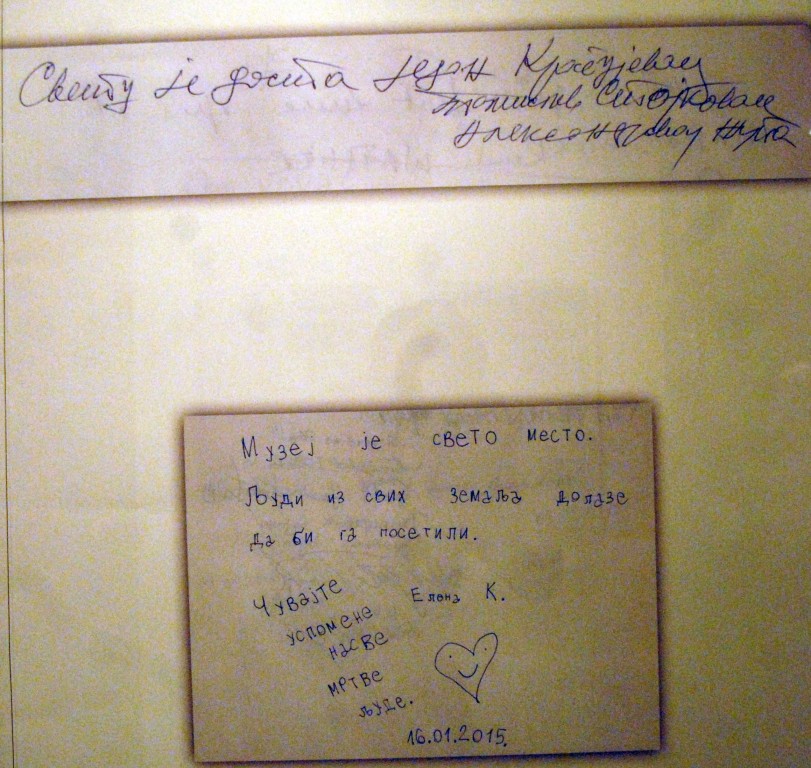 Свету је доста један Крагујевац
Александровац Жупа
Музеј је свето место.
Људи из свих земаља долазе
да би га посетили.
Чувајте
успомене
насве
мртве
људе.
Елена К.
16.01.2015.